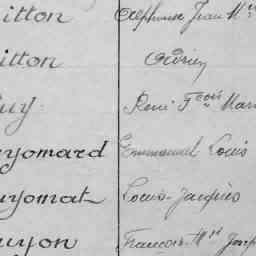 itton Alphonse Jean M
itton Adrien
uy René Fçois Mari
uyomard Emmanuel Louis
uyomat Louis-Jacques
uyon François-Mie Josep